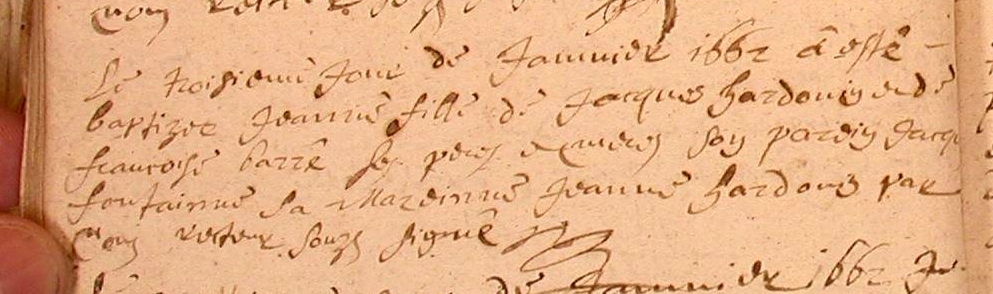 Le troisieme Jour de Jannuier 1662 a esté
baptizee Jeanne fille de Jacques hardouin et de
francoise barré ses peres et meres son parein Jacq
fontainne sa Mareinne Jeanne hardouin par
moy recteur soubs signé
de Jannuier 1662